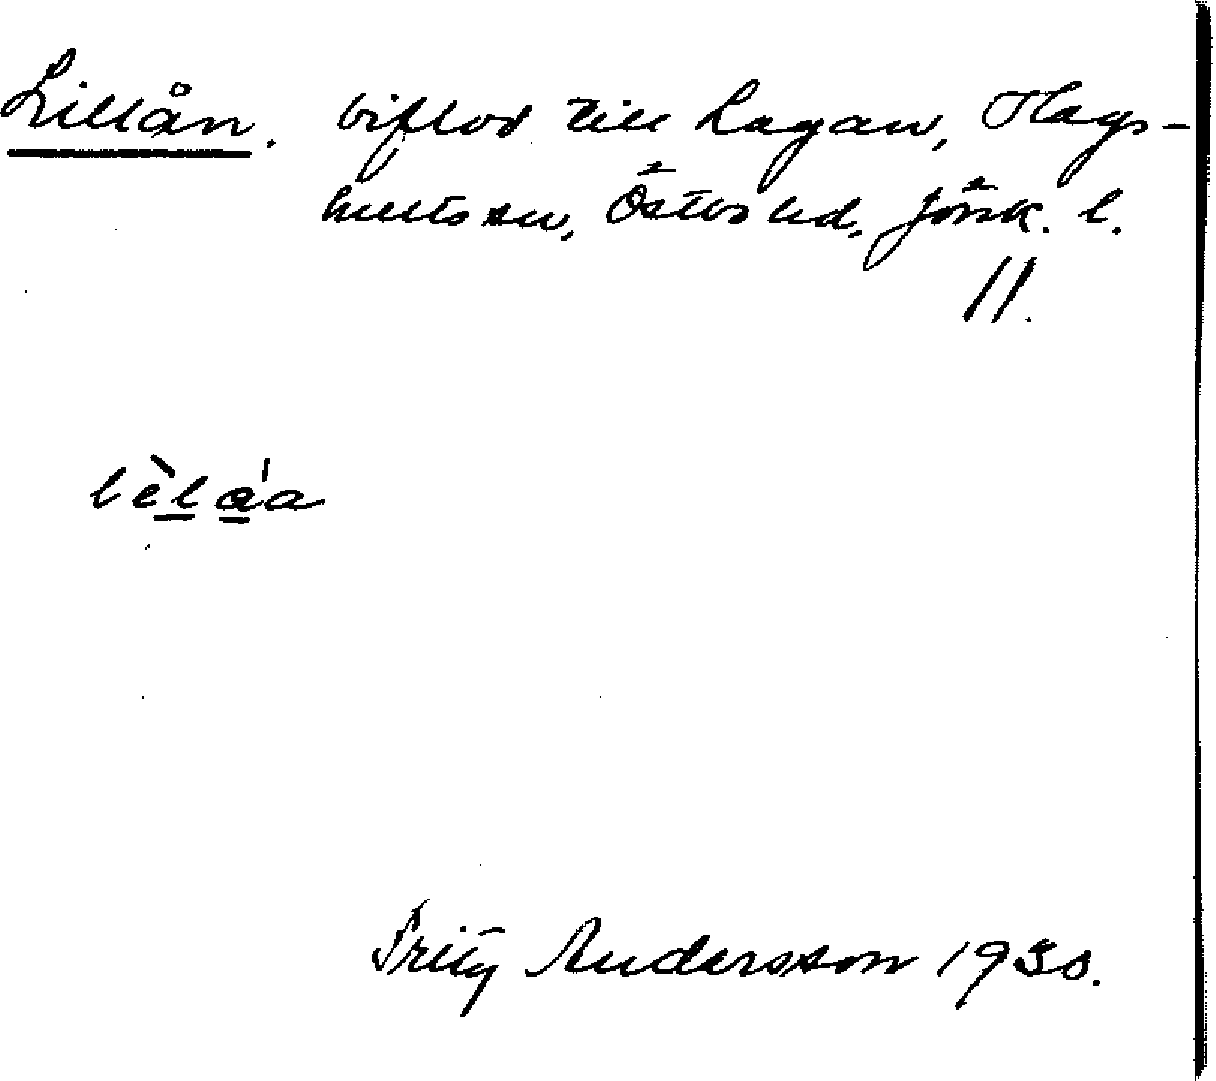 Lillån. biflod till Lagan, Hags-
hults sn, Östbo hd, Jönk. l.
11.
lèl a̲'a
Fritz Andersson 1930.